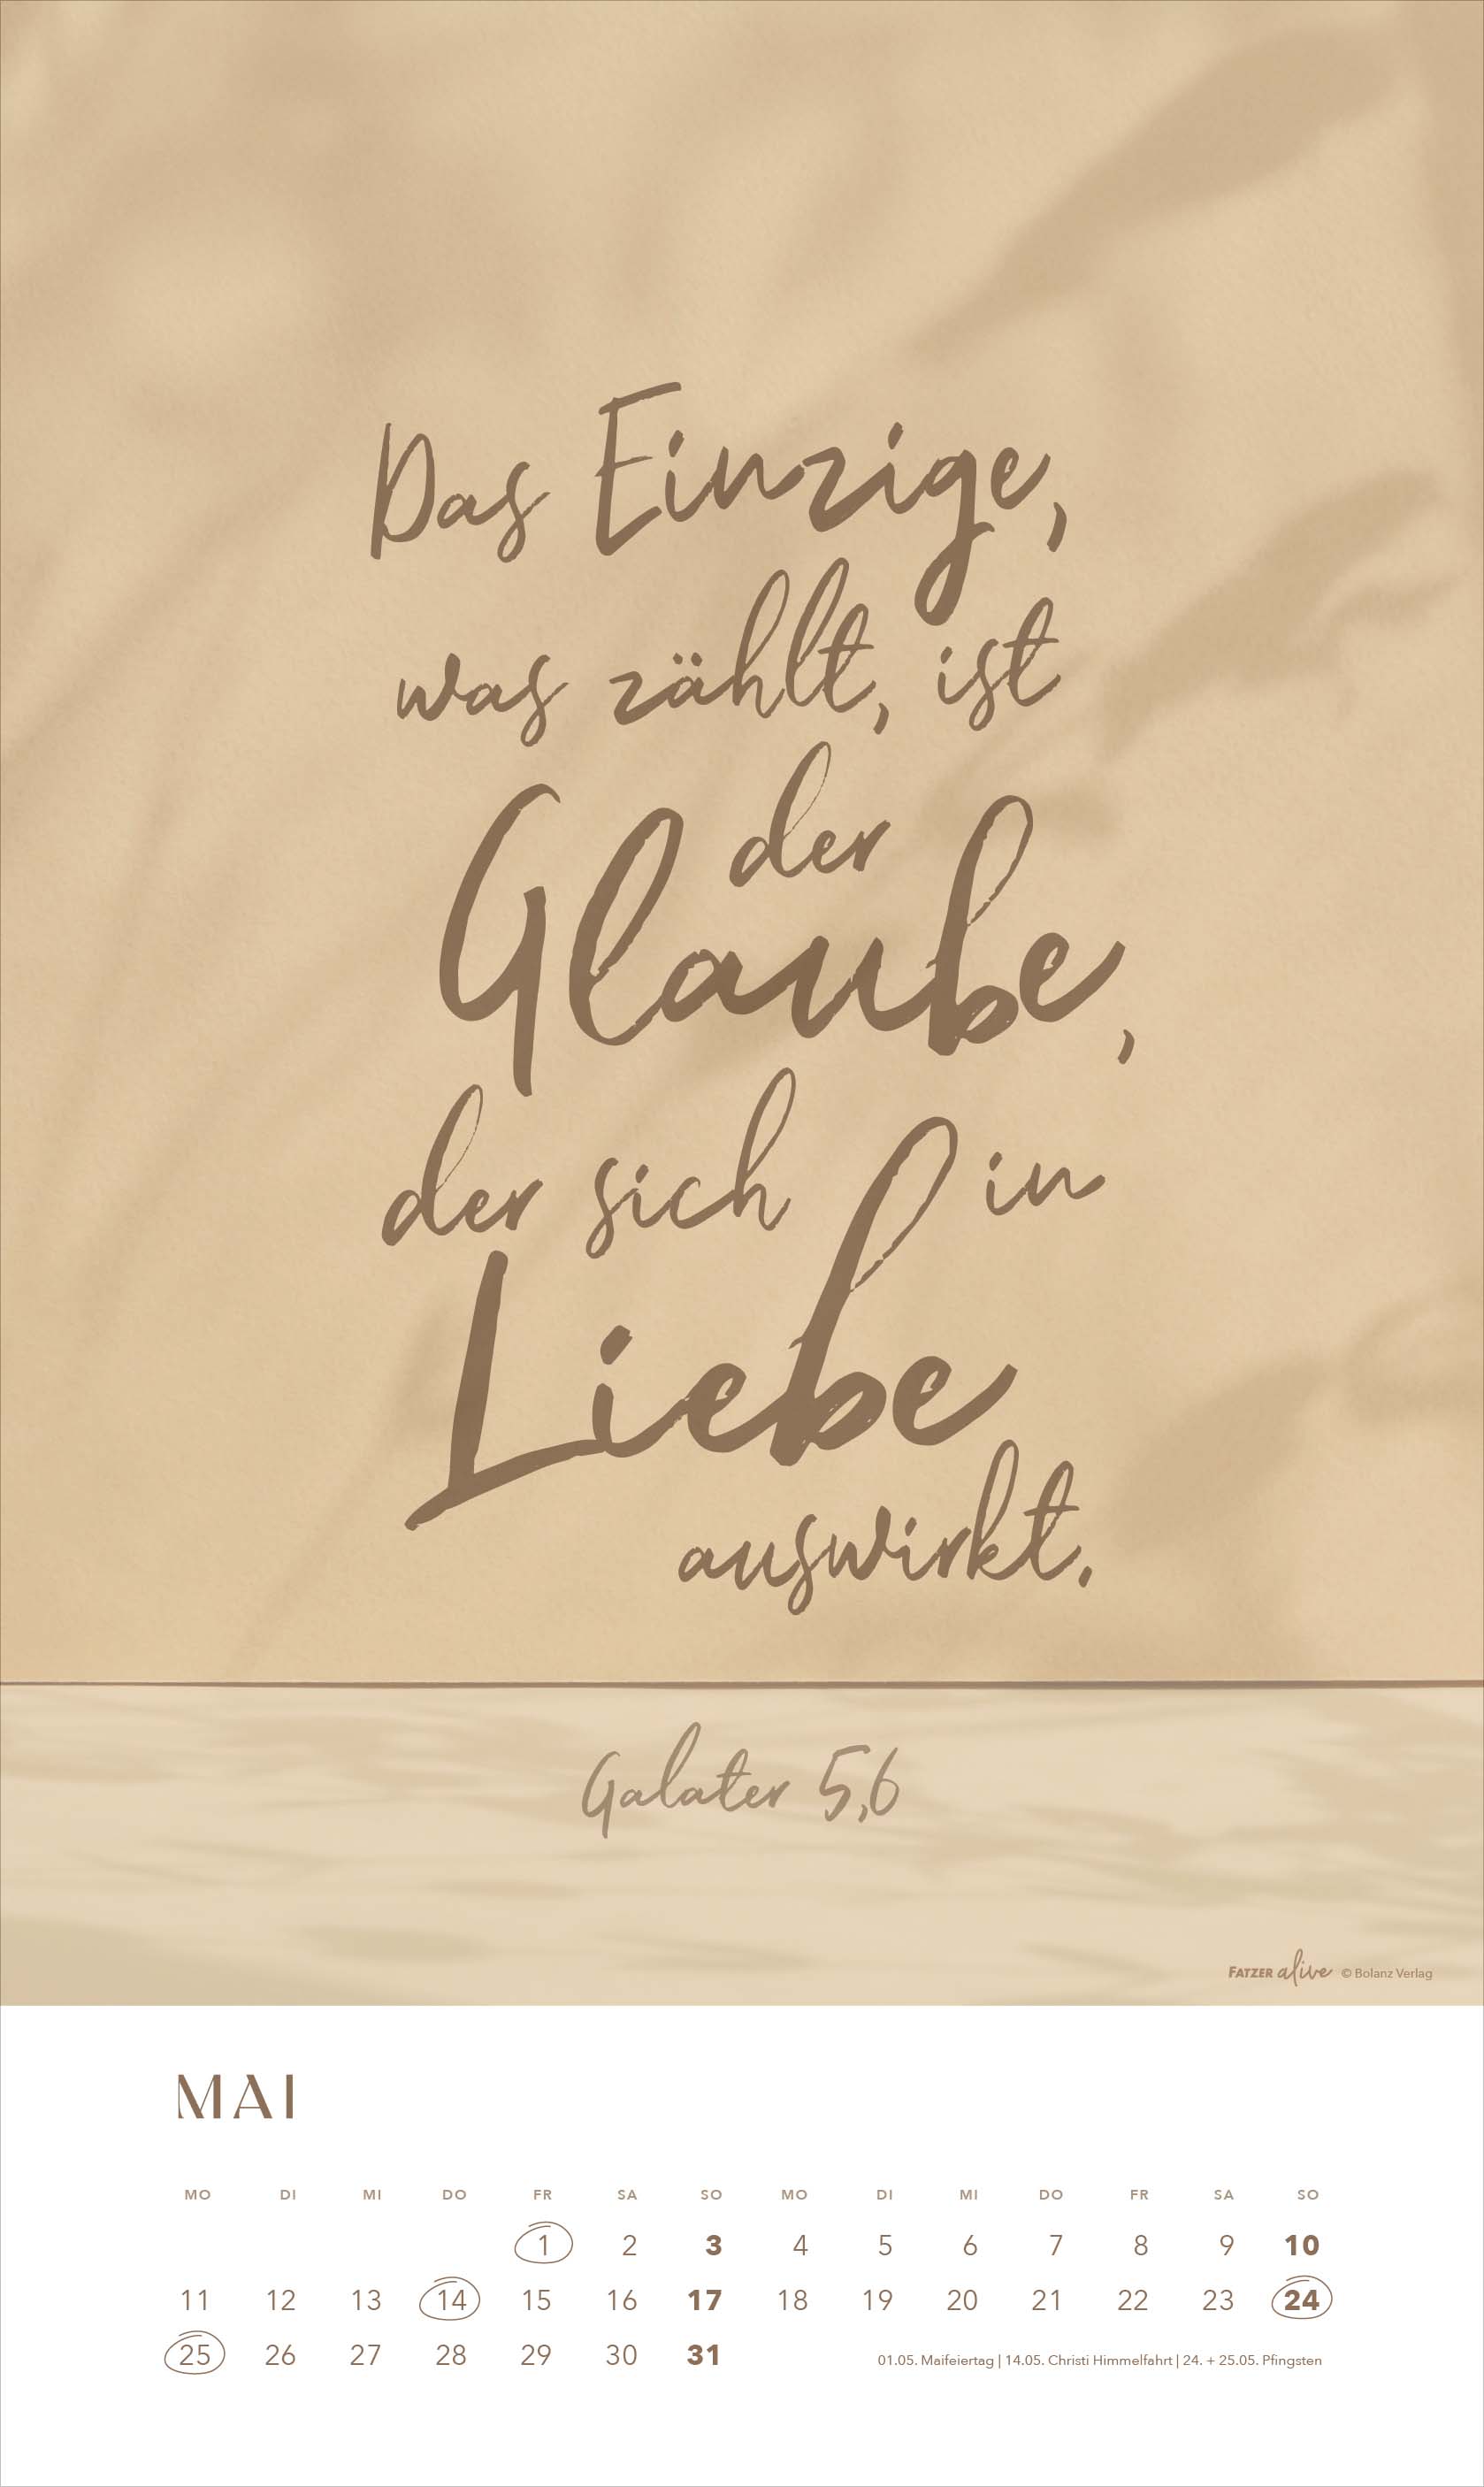 Das Einzige,
was zählt, ist
der
Glaube,
der sich in
Liebe
auswirkt.
Galater 5,6
FATZER alive © Bolanz Verlag
MAI
MO DI MI DO FR SA SO MO DI MI DO FR SA SO
1 2 3 4 5 6 7 8 9 10
11 12 13 14 15 16 17 18 19 20 21 22 23 24
25 26 27 28 29 30 31
01.05. Maifeiertag | 14.05. Christi Himmelfahrt | 24. + 25.05. Pfingsten